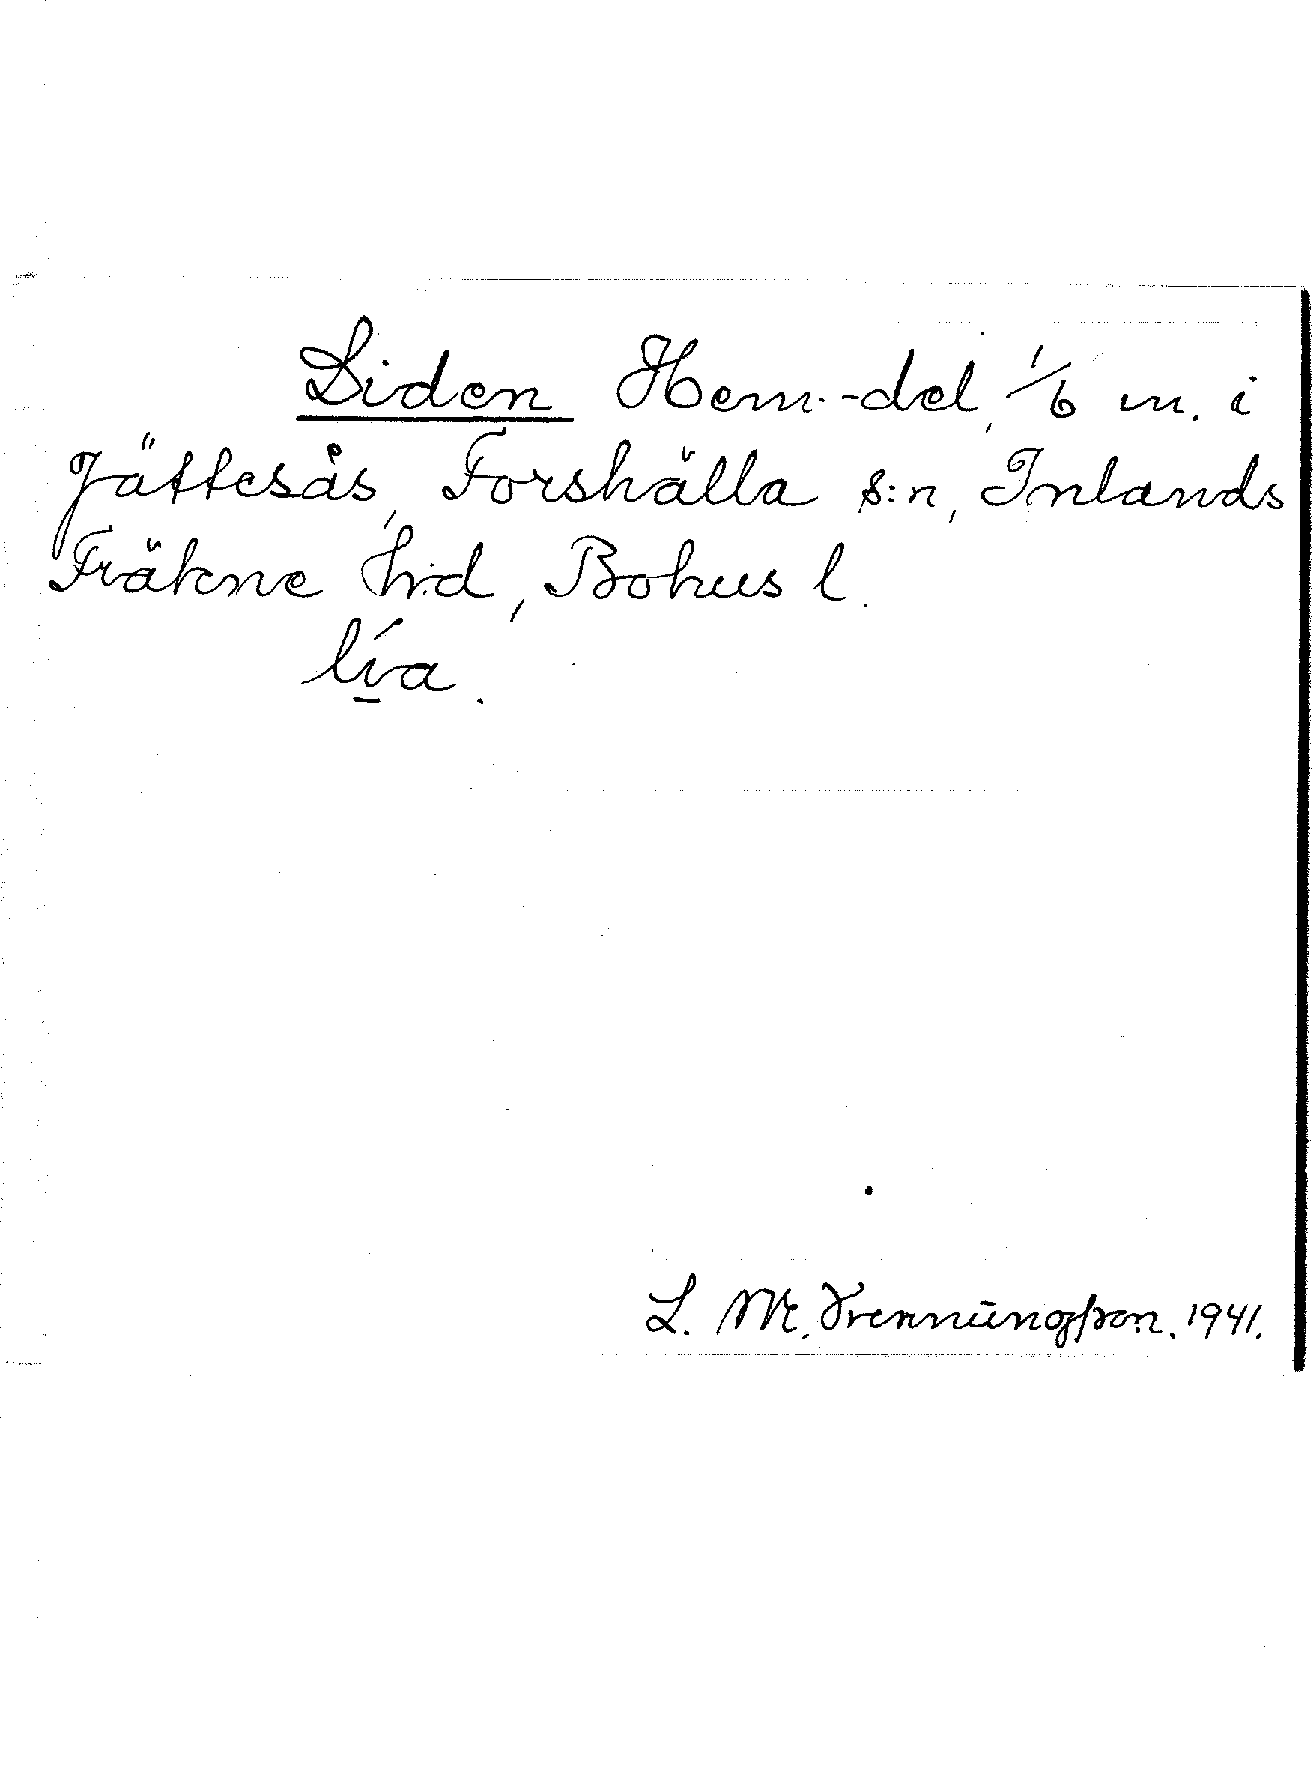 Liden Hem.-del, 1/6 m. i
Jättesås, Forshälla s:n, Inlands
Fräkne h:d, Bohus l.
lía.
L. M. Svenningsson. 1941.